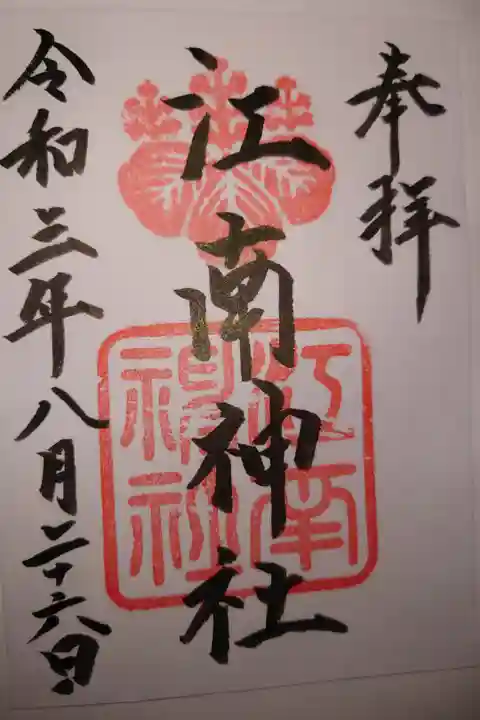 奉拝
江南神社
江南神社
令和三年八月二十六日